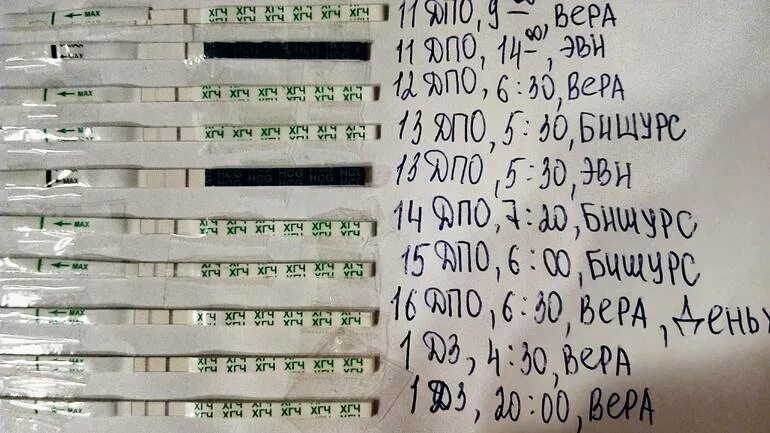 MAX ХГЧ ХГЧ ХГЧ ХГЧ ХГЧ ХГЧ 11 ДПО, 9-00, ВЕРА
HCG HCG HCG HCG 11 ДПО, 14-00, ЭВН
MAX ХГЧ ХГЧ ХГЧ ХГЧ ХГЧ ХГЧ 12 ДПО, 6:30, ВЕРА
MAX ХГЧ ХГЧ ХГЧ ХГЧ ХГЧ ХГЧ 13 ДПО, 5:30, БИШУРС
MAX HCG HCG HCG HCG 13 ДПО, 5:30, ЭВН
MAX ХГЧ ХГЧ ХГЧ ХГЧ ХГЧ ХГЧ 14 ДПО, 7:20, БИШУРС
MAX ХГЧ ХГЧ ХГЧ ХГЧ ХГЧ ХГЧ 15 ДПО, 6:00, БИШУРС
MAX ХГЧ ХГЧ ХГЧ ХГЧ ХГЧ ХГЧ 16 ДПО, 6:30, ВЕРА,
MAX ХГЧ ХГЧ ХГЧ ХГЧ ХГЧ ХГЧ 1 ДЗ, 4:30, ВЕРА
MAX ХГЧ ХГЧ ХГЧ ХГЧ ХГЧ ХГЧ 1 ДЗ, 20:00, ВЕРА